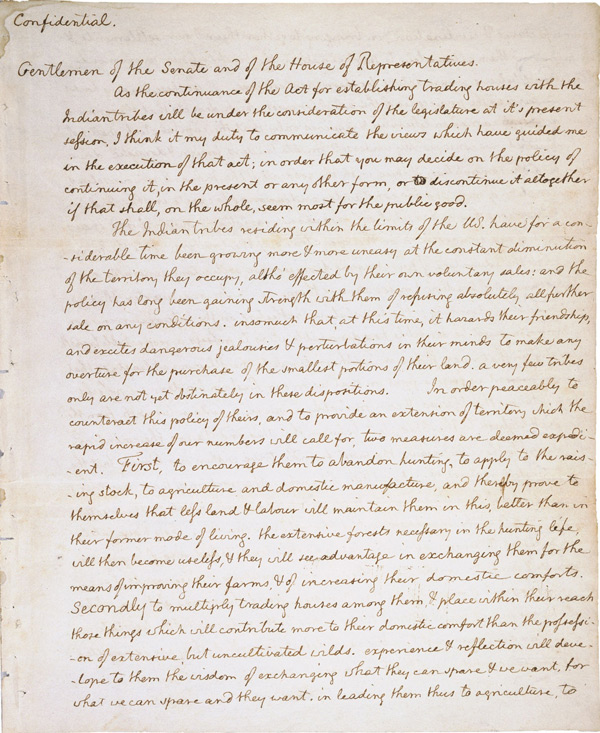 Confidential.
Gentlemen of the Senate and of the House of Representatives.
As the continuance of the Act for establishing trading houses with the
Indian tribes will be under the consideration of the legislature at it's present
session, I think it my duty to communicate the views which have guided me
in the execution of that act; in order that you may decide on the policy of
continuing it, in the present or any other form, or to discontinue it altogether
if that shall, on the whole, seem most for the public good.
The Indian tribes residing within the limits of the US. have for a con-
-siderable time been growing more & more uneasy at the constant diminution
of the territory they occupy, altho' effected by their own voluntary sales: and the
policy has long been gaining strength with them of refusing absolutely all further
sale on any conditions. insomuch that, at this time, it hazards their friendship,
and excites dangerous jealousies & perturbations in their minds to make any
overture for the purchase of the smallest portions of their land. a very few tribes
only are not yet obstinately in these dispositions. In order peaceably to
counteract this policy of theirs, and to provide an extension of territory which the
rapid increase of our numbers will call for, two measures are deemed expedi-
-ent. First, to encourage them to abandon hunting, to apply to the rais-
-ing stock, to agriculture and domestic manufacture, and thereby prove to
themselves that less land & labour will maintain them in this, better than in
their former mode of living. the extensive forests necessary in the hunting life,
will then become useless, & they will see advantage in exchanging them for the
means of improving their farms, & of increasing their domestic comforts.
Secondly to multiply trading houses among them, & place within their reach
those things which will contribute more to their domestic comfort than the possessi-
-on of extensive, but uncultivated wilds. experience & reflection will deve-
-lope to them the wisdom of exchanging what they can spare & we want, for
what we can spare and they want. in leading them thus to agriculture, to